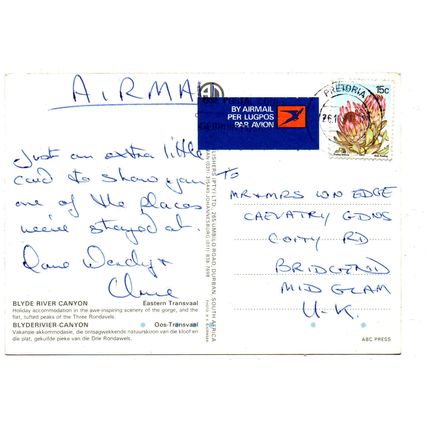 AIRMA
BY AIRMAIL
PER LUGPOS
PAR AVION
PRETORIA
15c
Just an extra little
card to show you
one of the places
we've stayed at.
Love Wendy &
Clive
TO
MR & MRS WN EDGE
GDNS
COITY RD
BRIDGEND
MID GLAM
U.K.
BLYDE RIVER CANYON Eastern Transvaal
Holiday accommodation in the awe-inspiring scenery of the gorge, and the
flat, tufted peaks of the Three Rondavels.
BLYDERIVIER-CANYON Oos-Transvaal
Vakansie-akkommodasie, die ontsagwekkende natuurskoon van die kloof en
die plat, gekuifde pieke van die Drie Rondawels.
PUBLISHERS (PTY) LTD., 265 UMBILO ROAD, DURBAN, SOUTH AFRICA
ABC PRESS